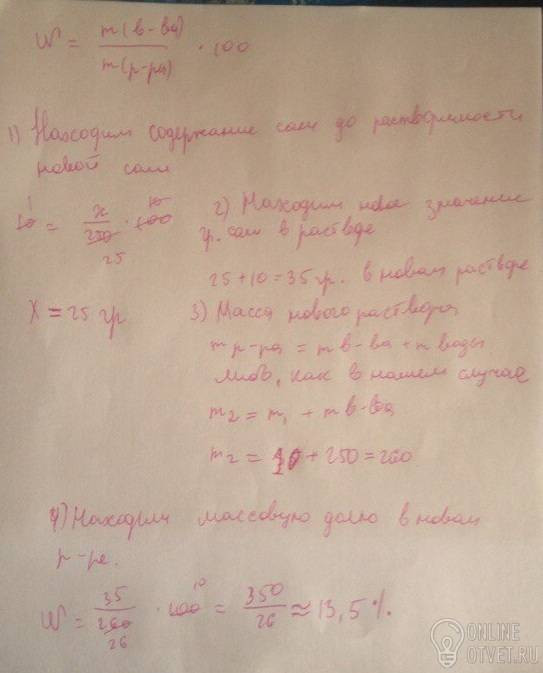 W = m(в-ва) / m(р-ра) · 100
1) Находим содержание соли до растворимости
новой соли
10 = x/250 · 100
1 10
25
x = 25 гр.
2) Находим новое значение
гр. соли в растворе
25 + 10 = 35 гр. в новом растворе
3) Масса нового раствора
m р-ра = m в-ва + m воды
либо, как в нашем случае
m₂ = m₁ + m в-ва
m₂ = 10 + 250 = 260
4) Находим массовую долю в новом
р-ре.
W = 35/260 · 100 = 350/26 ≈ 13,5 %.
26 10
ONLINE
OTVET.RU